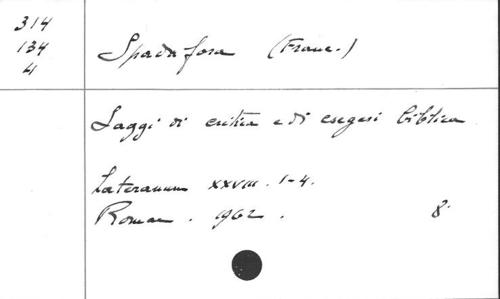 314
134
4
Spadafora (Franc.)
Saggi di critica e di esegesi biblica
Lateranum XXVIII. 1-4.
Romae. 1962. 8°